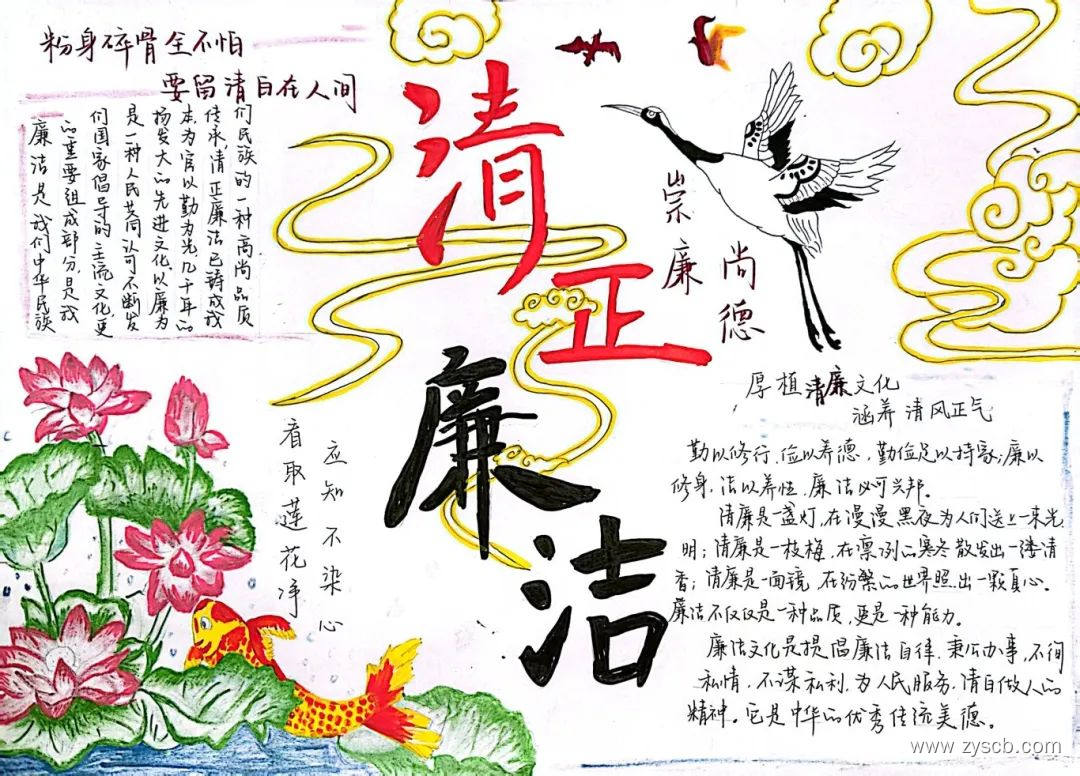 粉身碎骨全不怕
要留清白在人间
廉洁是我们中华民族
的重要组成部分,是我
们国家倡导的主流文化,更
是一种人民共同认可不断发
扬发大的先进文化,以廉为
本为官以勤为先几千年的
传承,清正廉洁已铸成我
们民族的一种高尚品质
清正
廉洁
崇廉
尚德
看取莲花净
应知不染心
厚植清廉文化
涵养清风正气
勤以修行,俭以养德,勤俭足以持家;廉以
修身,洁以养性,廉洁必可兴邦。
清廉是一盏灯,在漫漫黑夜为人们送上一束光
明;清廉是一枝梅,在凛冽的寒冬散发出一缕清
香;清廉是一面镜,在纷繁的世界照出一颗真心。
廉洁不仅仅是一种品质,更是一种能力。
廉洁文化是提倡廉洁自律,秉公办事,不徇
私情,不谋私利,为人民服务,清白做人的
精神。它是中华的优秀传统美德。
www.zyscb.com